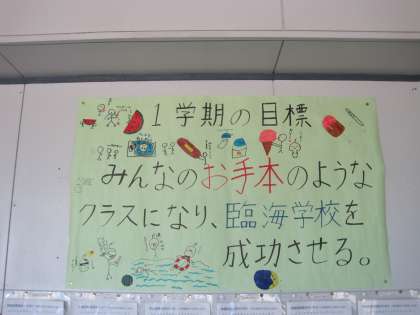 1学期の目標
みんなのお手本のような
クラスになり、臨海学校を
成功させる。